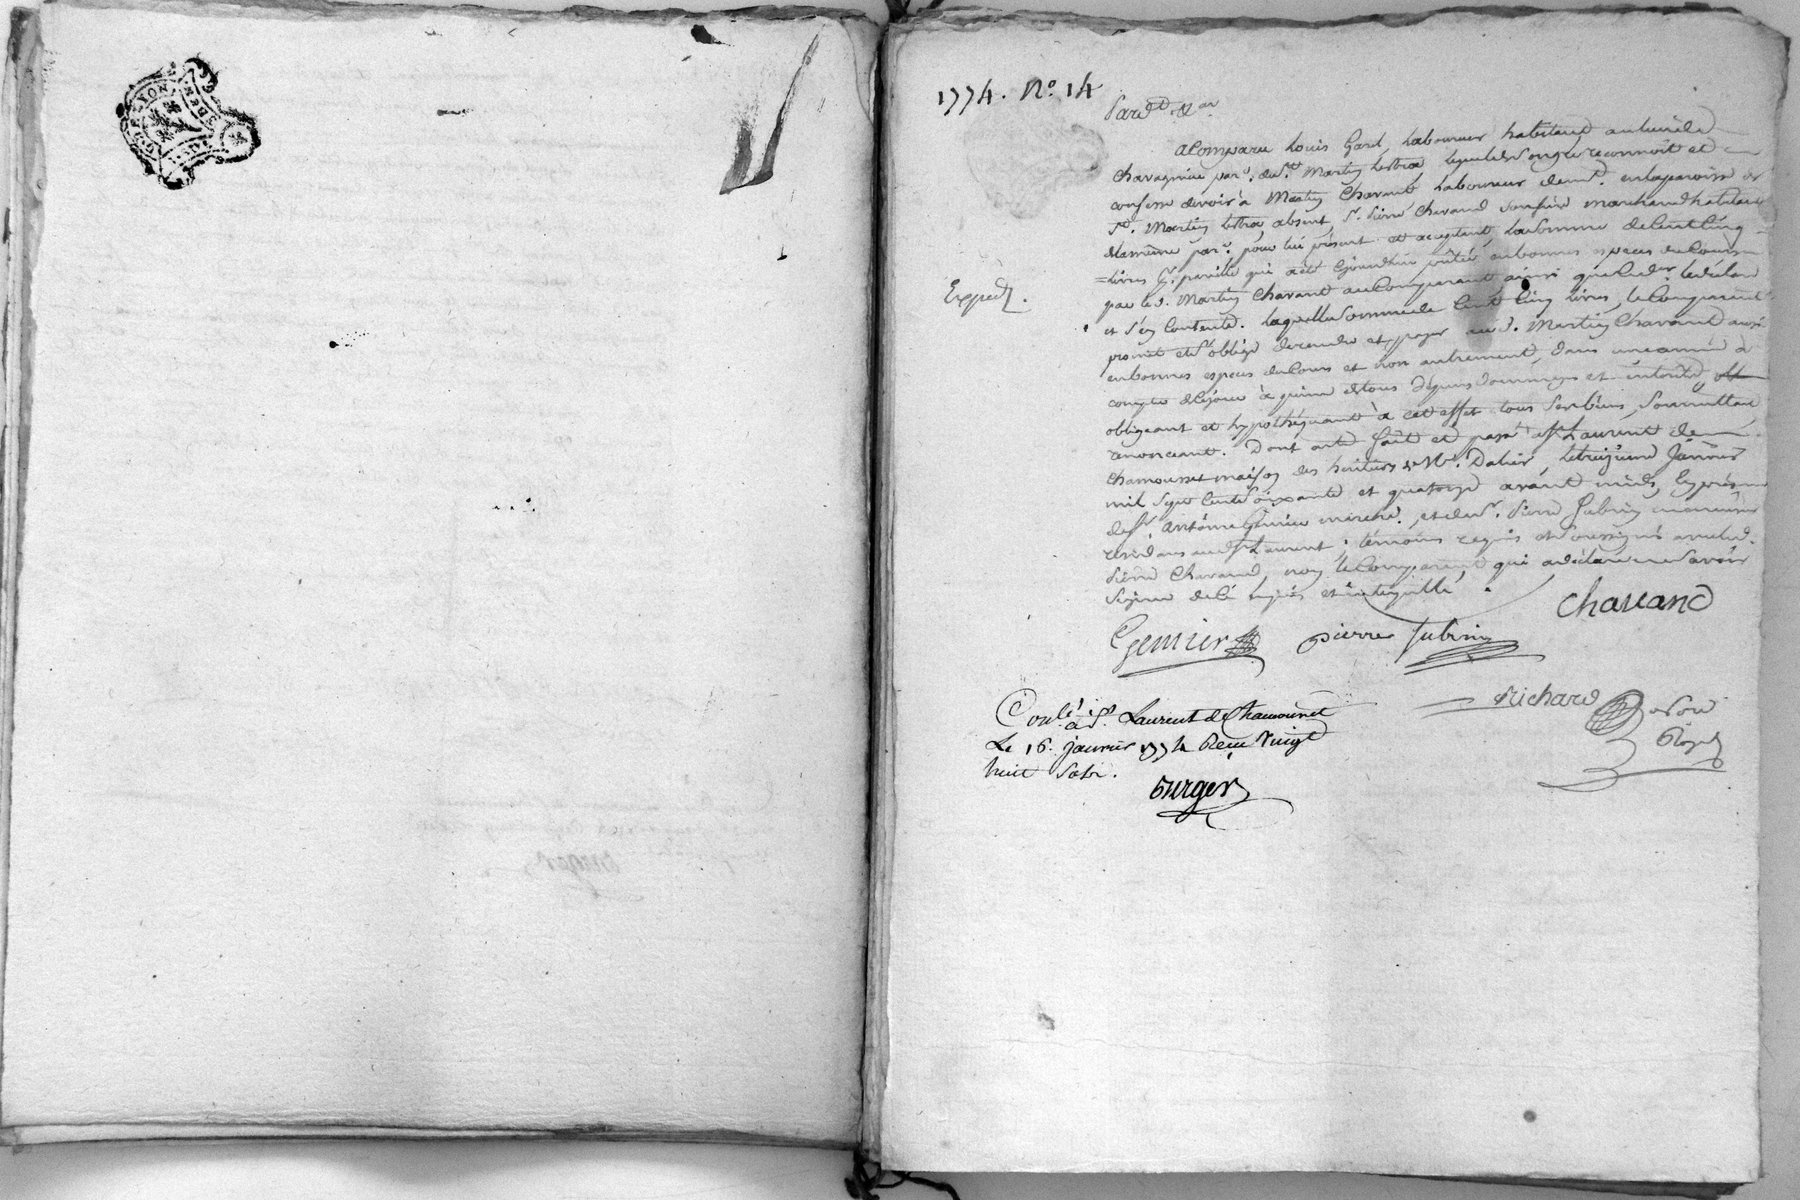 1774. N.º 14
Pard.t &.ar
a Comparu Louis Gord, Laboureur habitant au lieu de
Chavagnieu par.e de St. Martin Lestra lequel de son gré reconnoit et
confesse devoir à Martin Chavant Laboureur dem.t en la paroisse de
St. Martin Lestra, absent, Sr. Pierre Chavand son frère marchand habitant
de la même par.e pour lui présent et acceptant, la somme de Cent Cinq
livres pareille qui a été en bonnes especes de Cours
par led. Martin Chavant au Comparant, ainsi que le déclare
et s'en Contente. laquelle somme de Cent Cinq livres, le Comparant
promet et s'oblige de rendre et payer aud. Martin Chavant aussi
en bonnes especes de Cours et non autrement, dans une année à
compter de ce jour à peine de tous dépens dommages et intérêts,
obligeant et hypothéquant à cet effet tous ses biens, soumettant
renonceant. Dont acte fait et passé à St. Laurent de
Chamousset maison des heritiers de Me. Dalier, le treizieme Janvier
mil sept Cent soixante et quatorze avant midy, En présence
de Sr. Antoine Genier march.d, et de Sr. Pierre Jubin
résidans aud. St. Laurent, témoins requis et soussignés avec led.
Pierre Chavand, non le Comparant qui a déclaré ne savoir
signer de ce enquis et interpellé.
Chavand
Expedié.
Genier pierre Jubin
Richard
Not. Roya
Conlé à St. Laurent de Chamousset
Le 16. janvier 1774 Reçu Vingt
huit Sols.
Burger